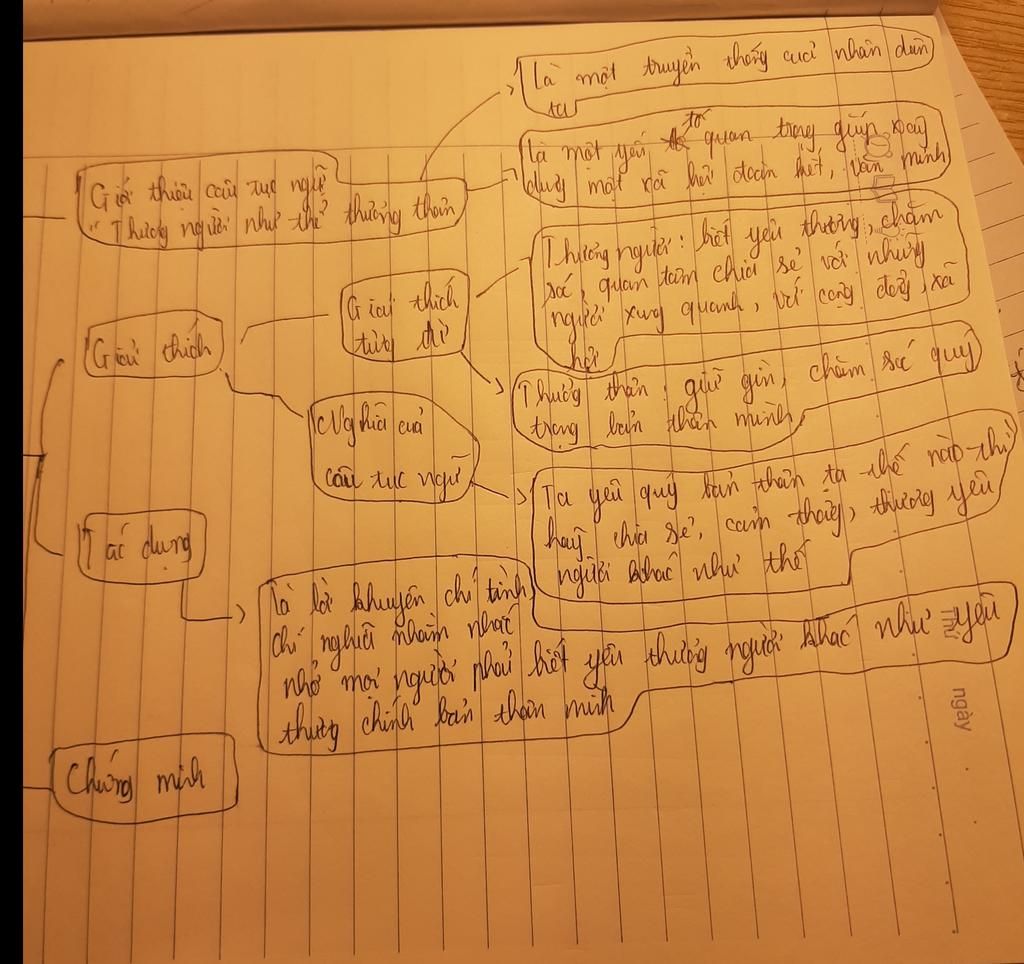 Là một truyền thống của nhân dân
ta
Là một yếu tố quan trọng giúp xây
dựng một xã hội đoàn kết, văn minh
Giới thiệu câu tục ngữ
"Thương người như thể thương thân
Thương người: biết yêu thương, chăm
sóc, quan tâm chia sẻ với những
người xung quanh, với cộng đồng, xã
hội
Giải thích
từng từ
Giải thích
Thương thân: giữ gìn, chăm sóc quý
trọng bản thân mình
Nghĩa của
câu tục ngữ
Ta yêu quý bản thân ta thế nào thì
hãy chia sẻ, cảm thông, thương yêu
người khác như thế
Tác dụng
Là lời khuyên chí tình
chí nghĩa nhằm nhắc
nhở mọi người phải biết yêu thương người khác như yêu
thương chính bản thân mình
Thứ
ngày
Chứng minh